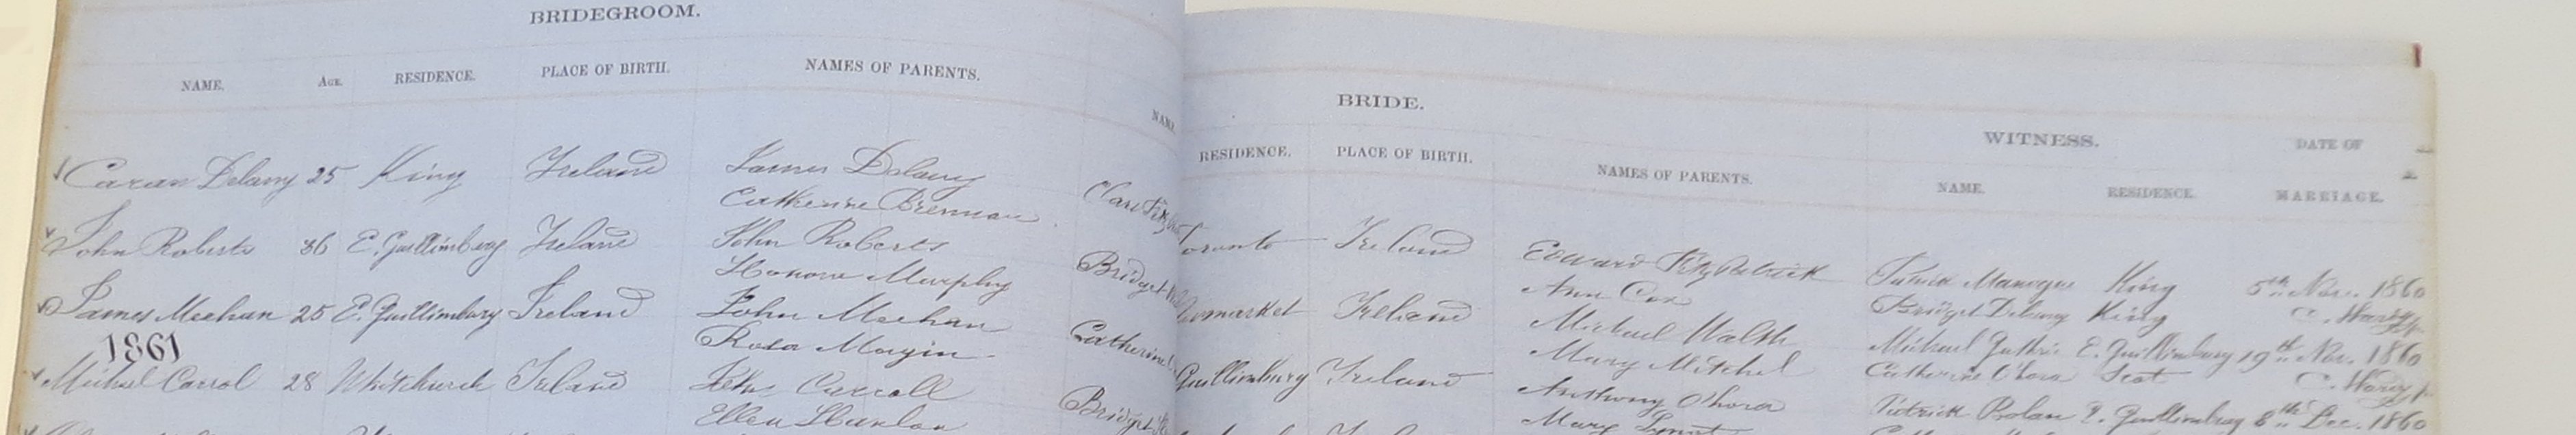 BRIDEGROOM.
NAME. AGE. RESIDENCE. PLACE OF BIRTH. NAMES OF PARENTS. NAME
Caran Delany 25 King Ireland James Delany
Catherine Brennan
John Roberts 36 E. Guillimbury Ireland John Roberts
Honora Murphy Bridget
James Meehan 25 E. Guillimbury Ireland John Meehan
Rosa Magin Catherine
1861
Michael Carrol 28 Whitchurch Ireland Carroll
Ellen Hanlon Bridget
BRIDE.
WITNESS. DATE OF
RESIDENCE. PLACE OF BIRTH. NAMES OF PARENTS. NAME. RESIDENCE. MARRIAGE.
Toronto Ireland Edward Fitzpatrick Patrick Manogue King 5th Nov. 1860
Ann Cox Bridget Delany King
Newmarket Ireland Michael Walsh Michael Guthrie E. Guillimbury 19th Nov. 1860
Mary Mitchel Catherine O'hora Scot
Guillimbury Ireland Anthony Ohora Patrick Bolan E. Guillimbury 8th Dec. 1860
Mary